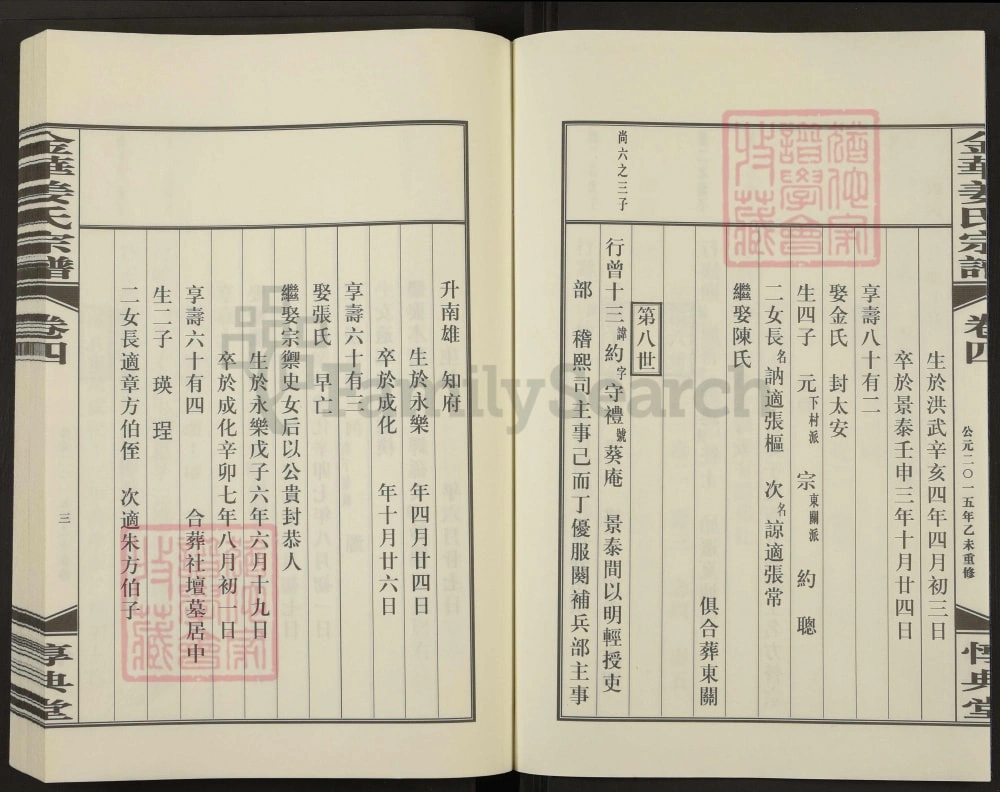 金華姜氏宗譜
卷四
公元二〇一五年乙未重修
惇典堂
生於洪武辛亥四年四月初三日
卒於景泰壬申三年十月廿四日
享壽八十有二
娶金氏 封太安
生四子 元下村派 宗東關派 約 聰
二女長名訥適張樞 次名諒適張常
繼娶陳氏
俱合葬東關
第八世
尚六之三子
行曾十三諱約字守禮號葵庵 景泰間以明輕授吏
部 稽熙司主事己而丁優服闋補兵部主事
升南雄 知府
生於永樂 年四月廿四日
卒於成化 年十月廿六日
享壽六十有三
娶張氏 早亡
繼娶宗禦史女后以公貴封恭人
生於永樂戊子六年六月十九日
卒於成化辛卯七年八月初一日
享壽六十有四 合葬社壇墓居中
生二子 瑛 珵
二女長適章方伯侄 次適朱方伯子
三
金華姜氏宗譜
卷四
惇典堂
FamilySearch